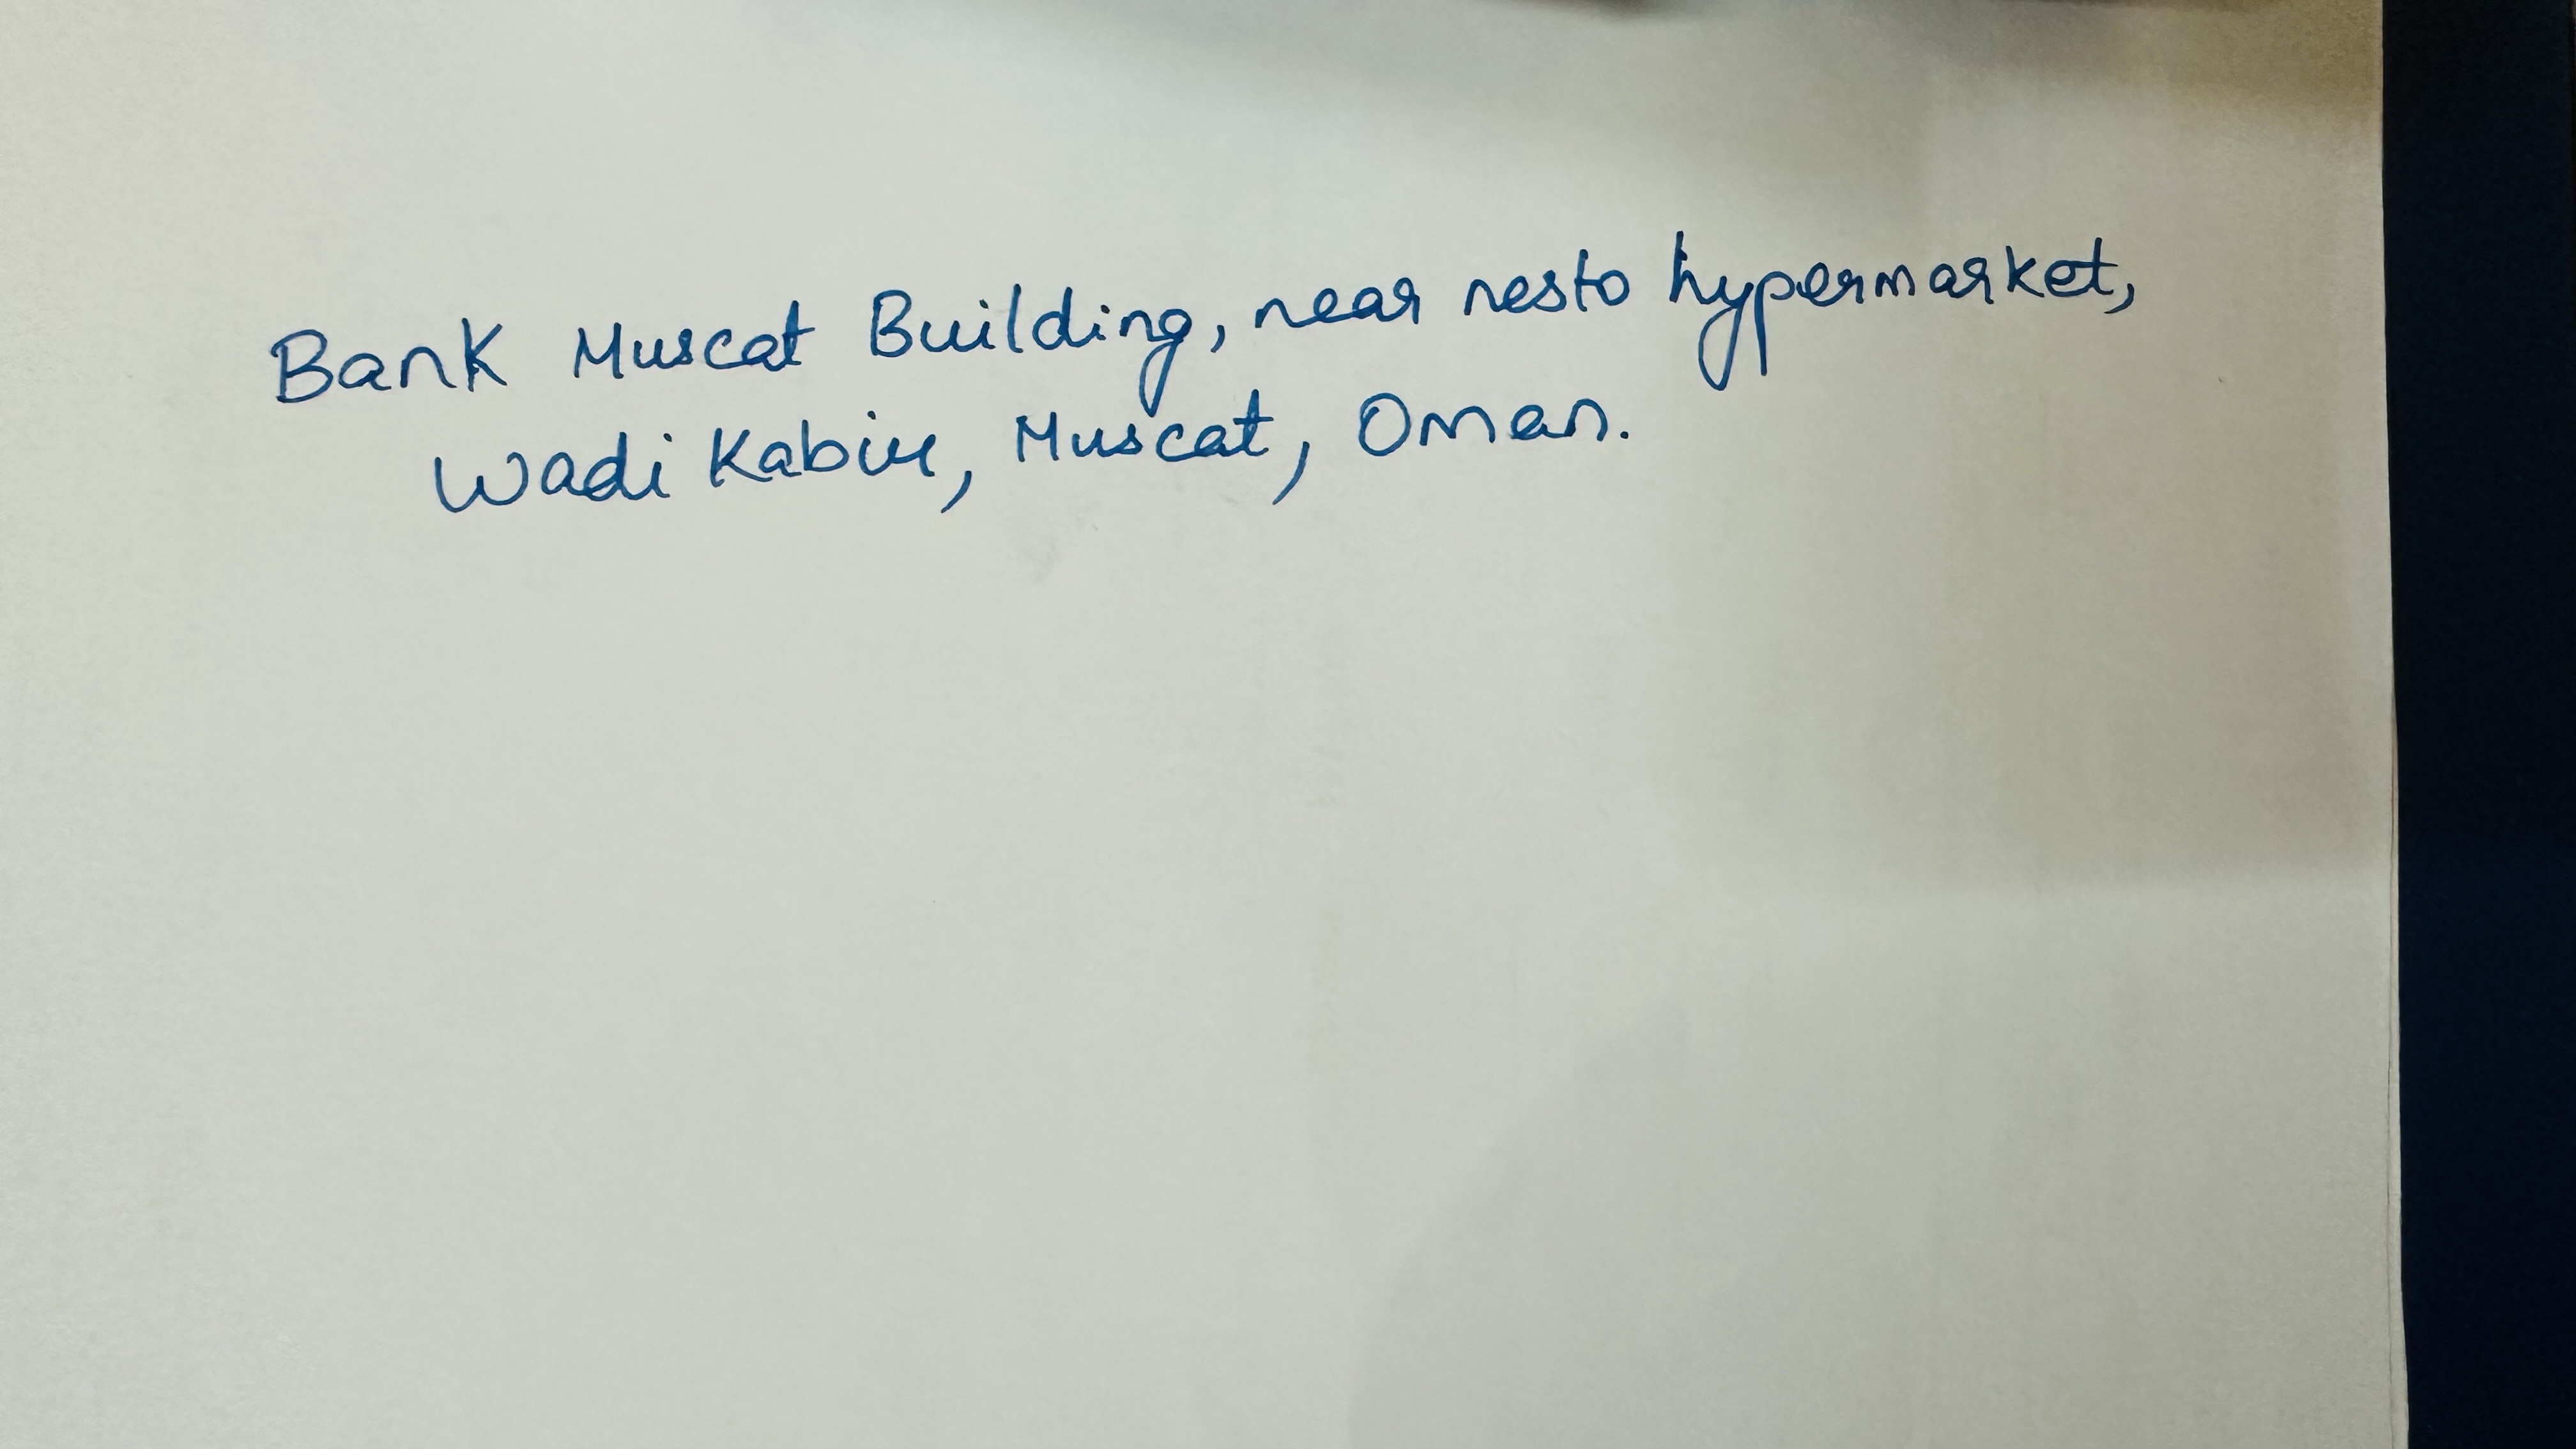 Bank Muscat Building, near nesto hypermarket,
Wadi Kabir, Muscat, Oman.